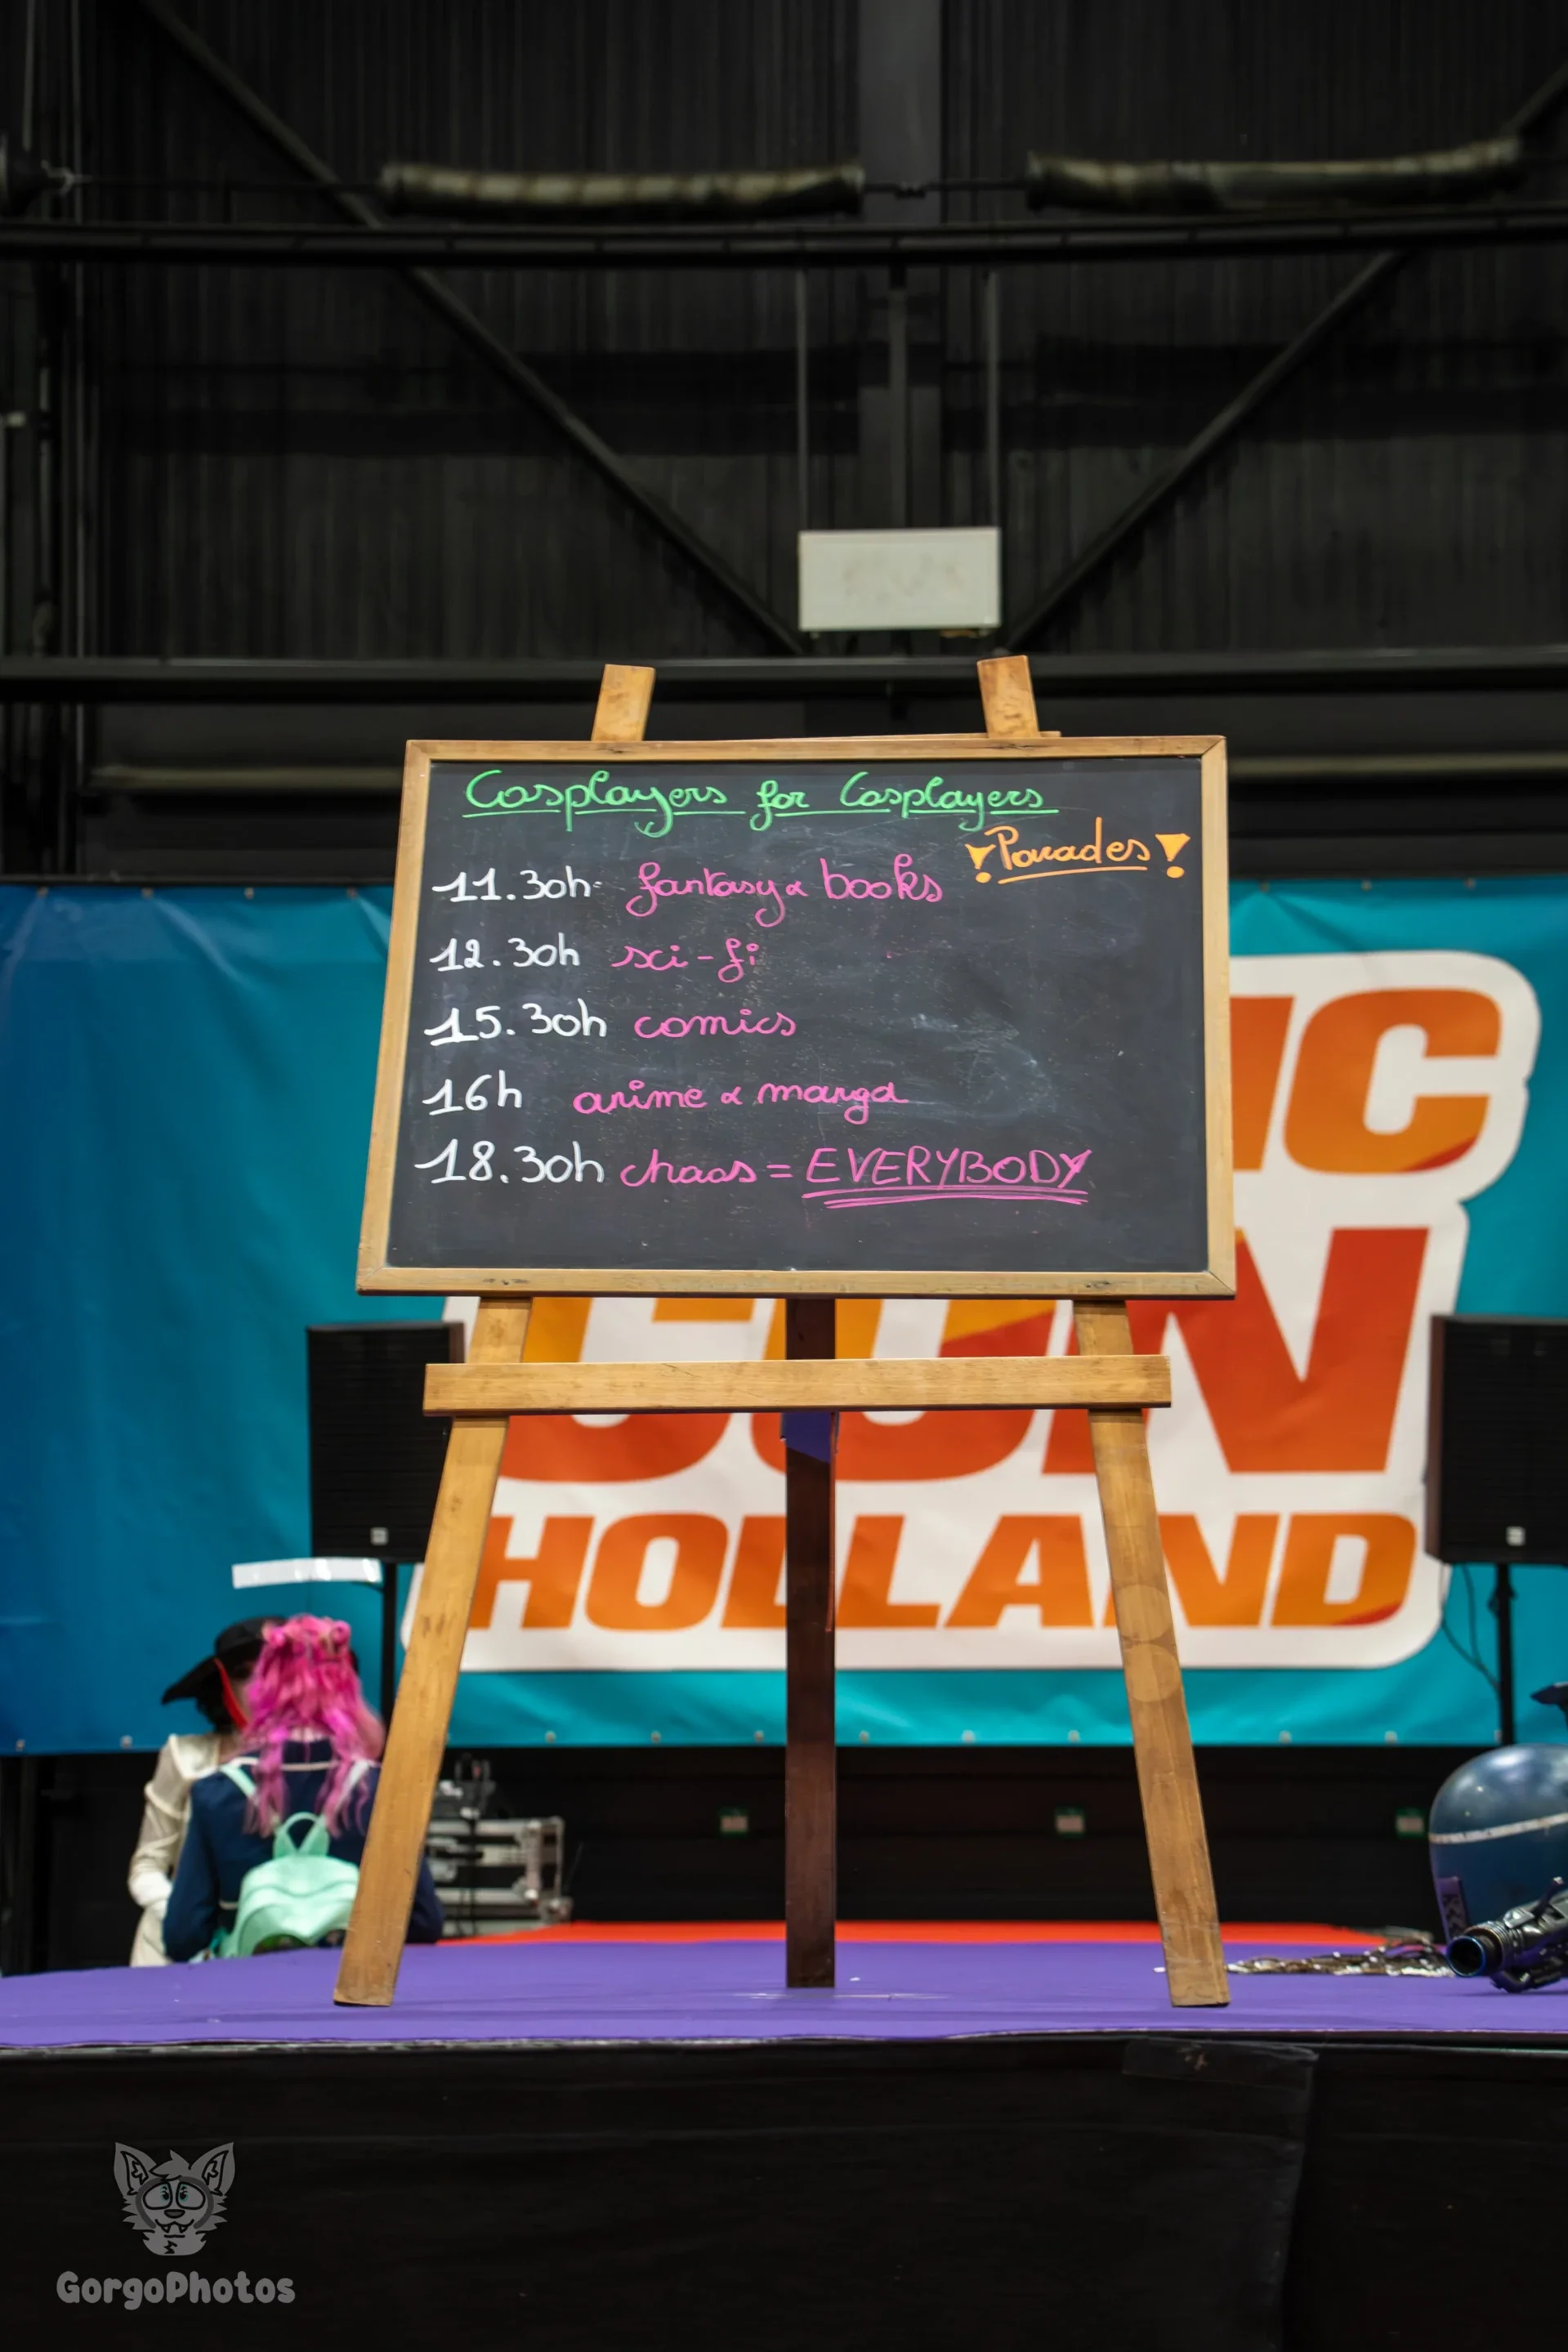 Cosplayers for Cosplayers
!Parades!
11.30h fantasy & books
12.30h sci-fi
15.30h comics
16h anime & manga
18.30h chaos = EVERYBODY
IC
CON
HOLLAND
GorgoPhotos